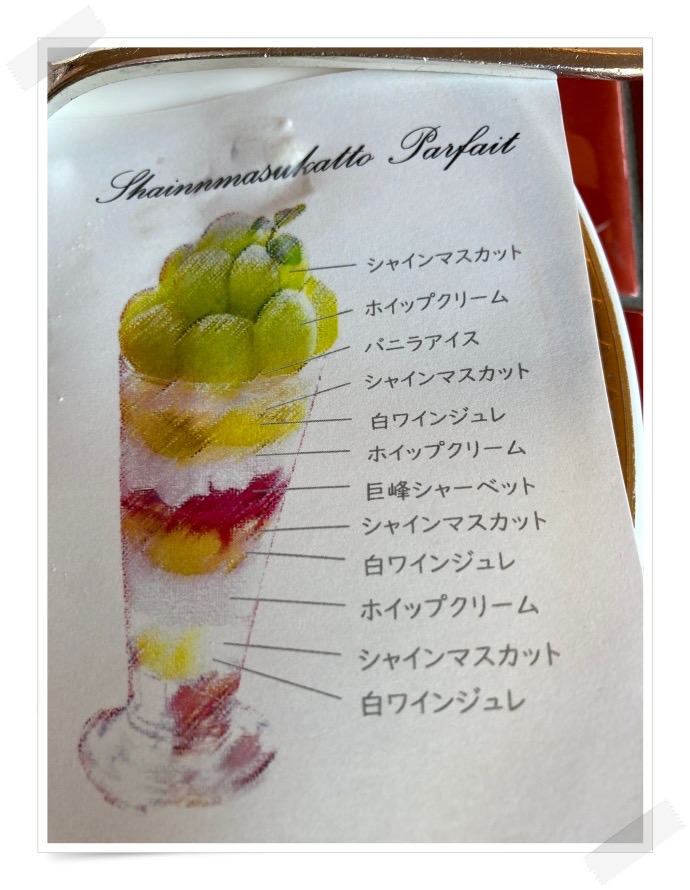 Shainnmasukatto Parfait
シャインマスカット
ホイップクリーム
バニラアイス
シャインマスカット
白ワインジュレ
ホイップクリーム
巨峰シャーベット
シャインマスカット
白ワインジュレ
ホイップクリーム
シャインマスカット
白ワインジュレ